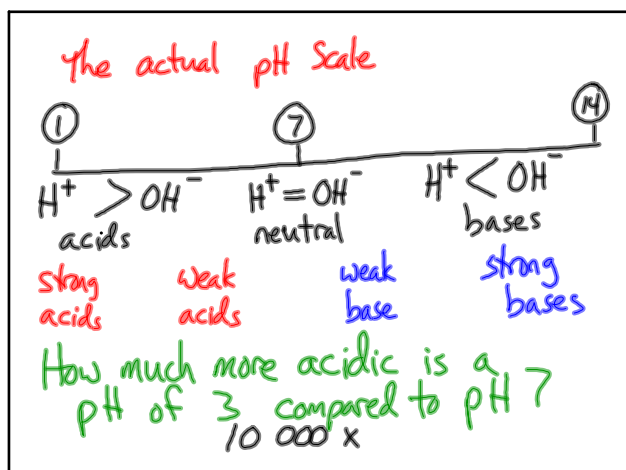 The actual pH Scale
1 7 14
H⁺ > OH⁻ H⁺ = OH⁻ H⁺ < OH⁻
acids neutral bases
strong acids weak acids weak base strong bases
How much more acidic is a
pH of 3 compared to pH 7
10 000 x